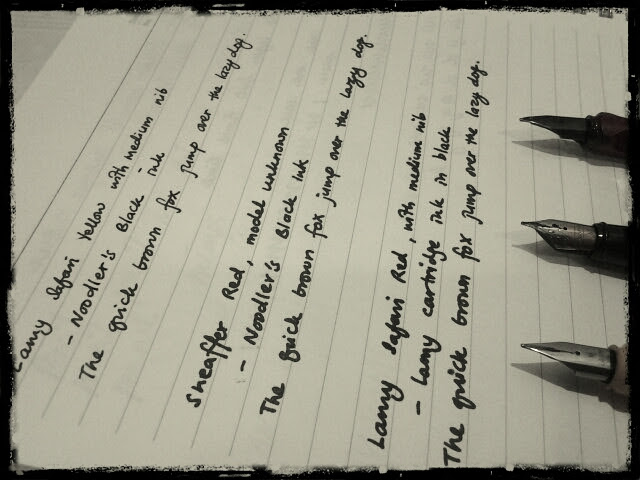 Lamy Safari Yellow with medium nib
- Noodler's Black ink
The quick brown fox jump over the lazy dog.
Sheaffer Red, model unknown
- Noodler's Black Ink
The quick brown fox jump over the lazy dog.
Lamy Safari Red, with medium nib
- Lamy cartridge ink in black
The quick brown fox jump over the lazy dog.